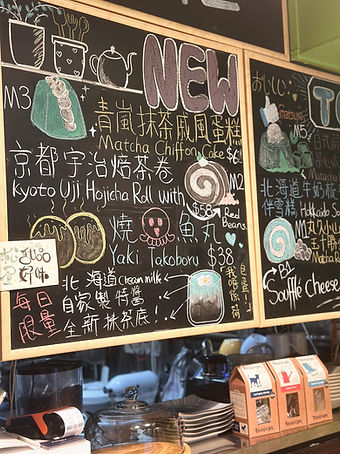 NEW
M3
青嵐抹茶戚風蛋糕
Matcha Chiffon Cake
京都宇治焙茶卷
Kyoto Uji Hojicha Roll with
Red
Beans
$58
M2
燒魚丸
Yaki Takoboru $38
每日
限量
北海道Cream milk
自家製特醬
全新抹茶底!
おいしい
matsuri
M5
日式
北海道牛奶旅
伴雪糕
Hokkaido So
M1
丸久小山
玉十勝
Matcha R
B1
Soufflé Cheese